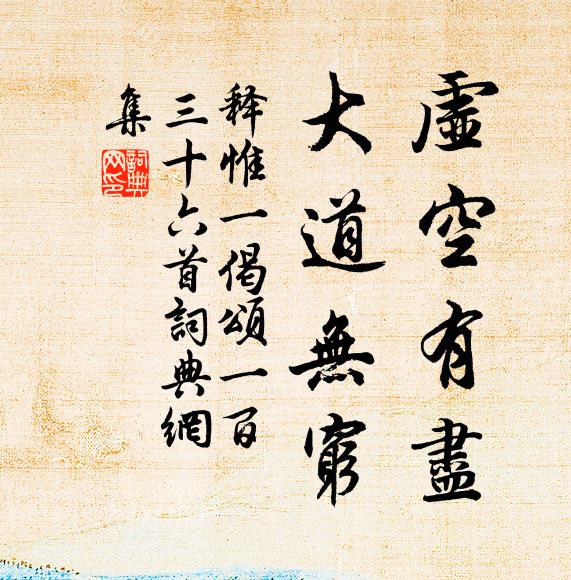 虛空有盡
大道無窮
释惟一偈頌一百
三十六首詞典網
集
詞典
网印